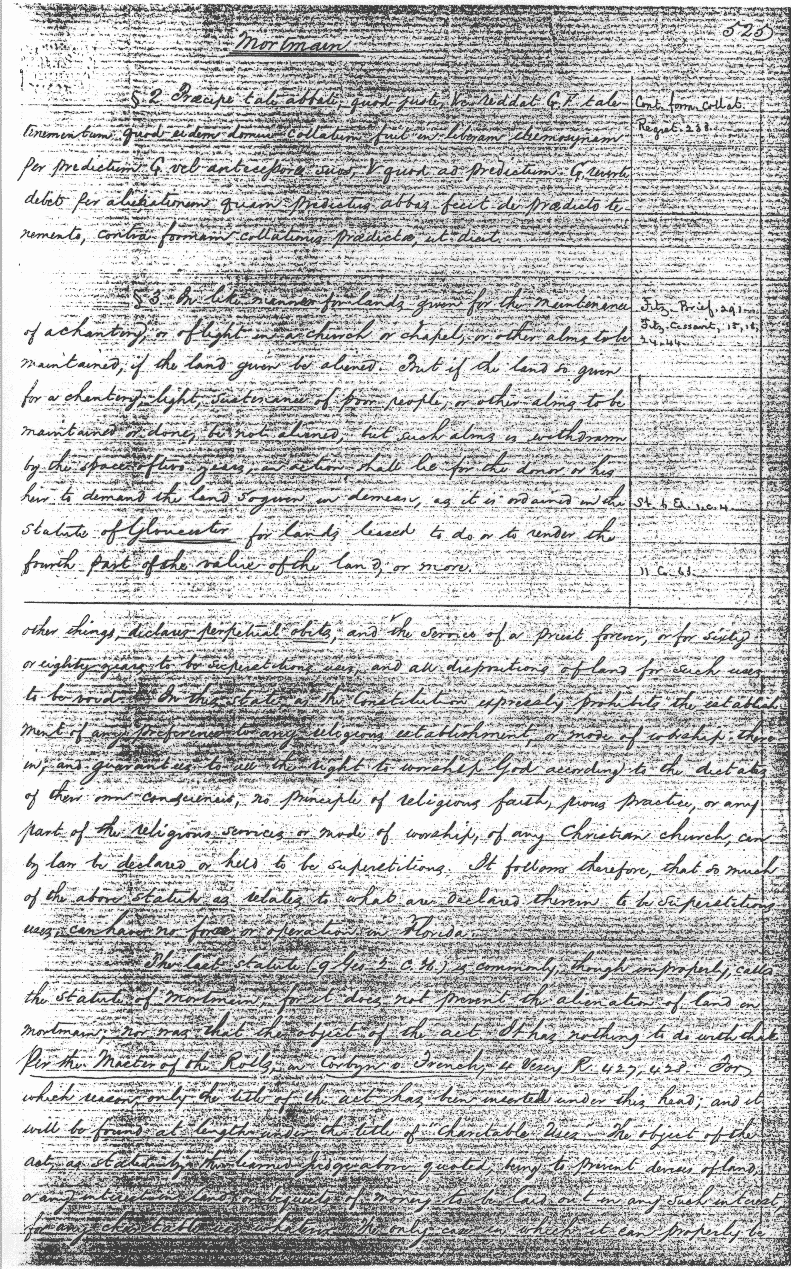 525
Mortmain
§ 2 Præcipe tali abbati, quod juste, &c. reddat G. F. tale
Cont. form. Collat.
tenementum quod eidem domui collatum fuit in liberam elemosynam
Regist. 238.
per predictum G. vel antecessores suos, & quod ad predictum G. reverti
debet per alienationem quam predictus abbas fecit de prædicto te-
nemento, contra formam collationis prædictæ, ut dicit.
§ 3 In like manner for lands given for the maintenance
Fitz. Brief. 291.
of a chantry, or of light in a church or chapel, or other alms to be
Fitz. Cessavit, 15, 18,
24. 44.
maintained, if the land given be aliened. But if the land so given
for a chantry, light, sustenance of poor people, or other alms to be
maintained or done, be not aliened, but such alms is withdrawn
by the space of two years, an action shall lie for the donor or his
heir to demand the land so given in demean, as it is ordained in the
St. 6 Ed. 1, c. 4.
Statute of Gloucester for lands leased to do or to render the
fourth part of the value of the land, or more.
11 C. 63.
other things, declares perpetual obits, and the service of a priest forever, or for sixty
or eighty years to be superstitious uses, and all dispositions of land for such uses
to be void. In this State, as the Constitution expressly prohibits the establish
ment of any preference to any religious establishment, or mode of worship there
in, and guarantees to all the right to worship God according to the dictates
of their own consciences, no principle of religious faith, pious practice, or any
part of the religious services or mode of worship, of any Christian church, can
by law be declared or held to be superstitious. It follows therefore, that so much
of the above statute as relates to what are declared therein to be superstitious
uses, can have no force or operation in Florida.
The last statute (9 Geo. 2. C. 36.) is commonly, though improperly, called
the statute of Mortmain, for it does not prevent the alienation of land in
mortmain; nor was that the object of the act. It has nothing to do with that
Per the Master of the Rolls, in Corbyn v. French, 4 Vesey R. 427, 428. For
which reason only the title of the act has been inserted under this head, and it
will be found at length under the title of "Charitable Uses" The object of the
act, as stated by the learned Judge above quoted, being to prevent devises of land,
or any interest in land, or bequests of money to be laid out in any such interest,
for any charitable use whatever. The only in which it can properly be